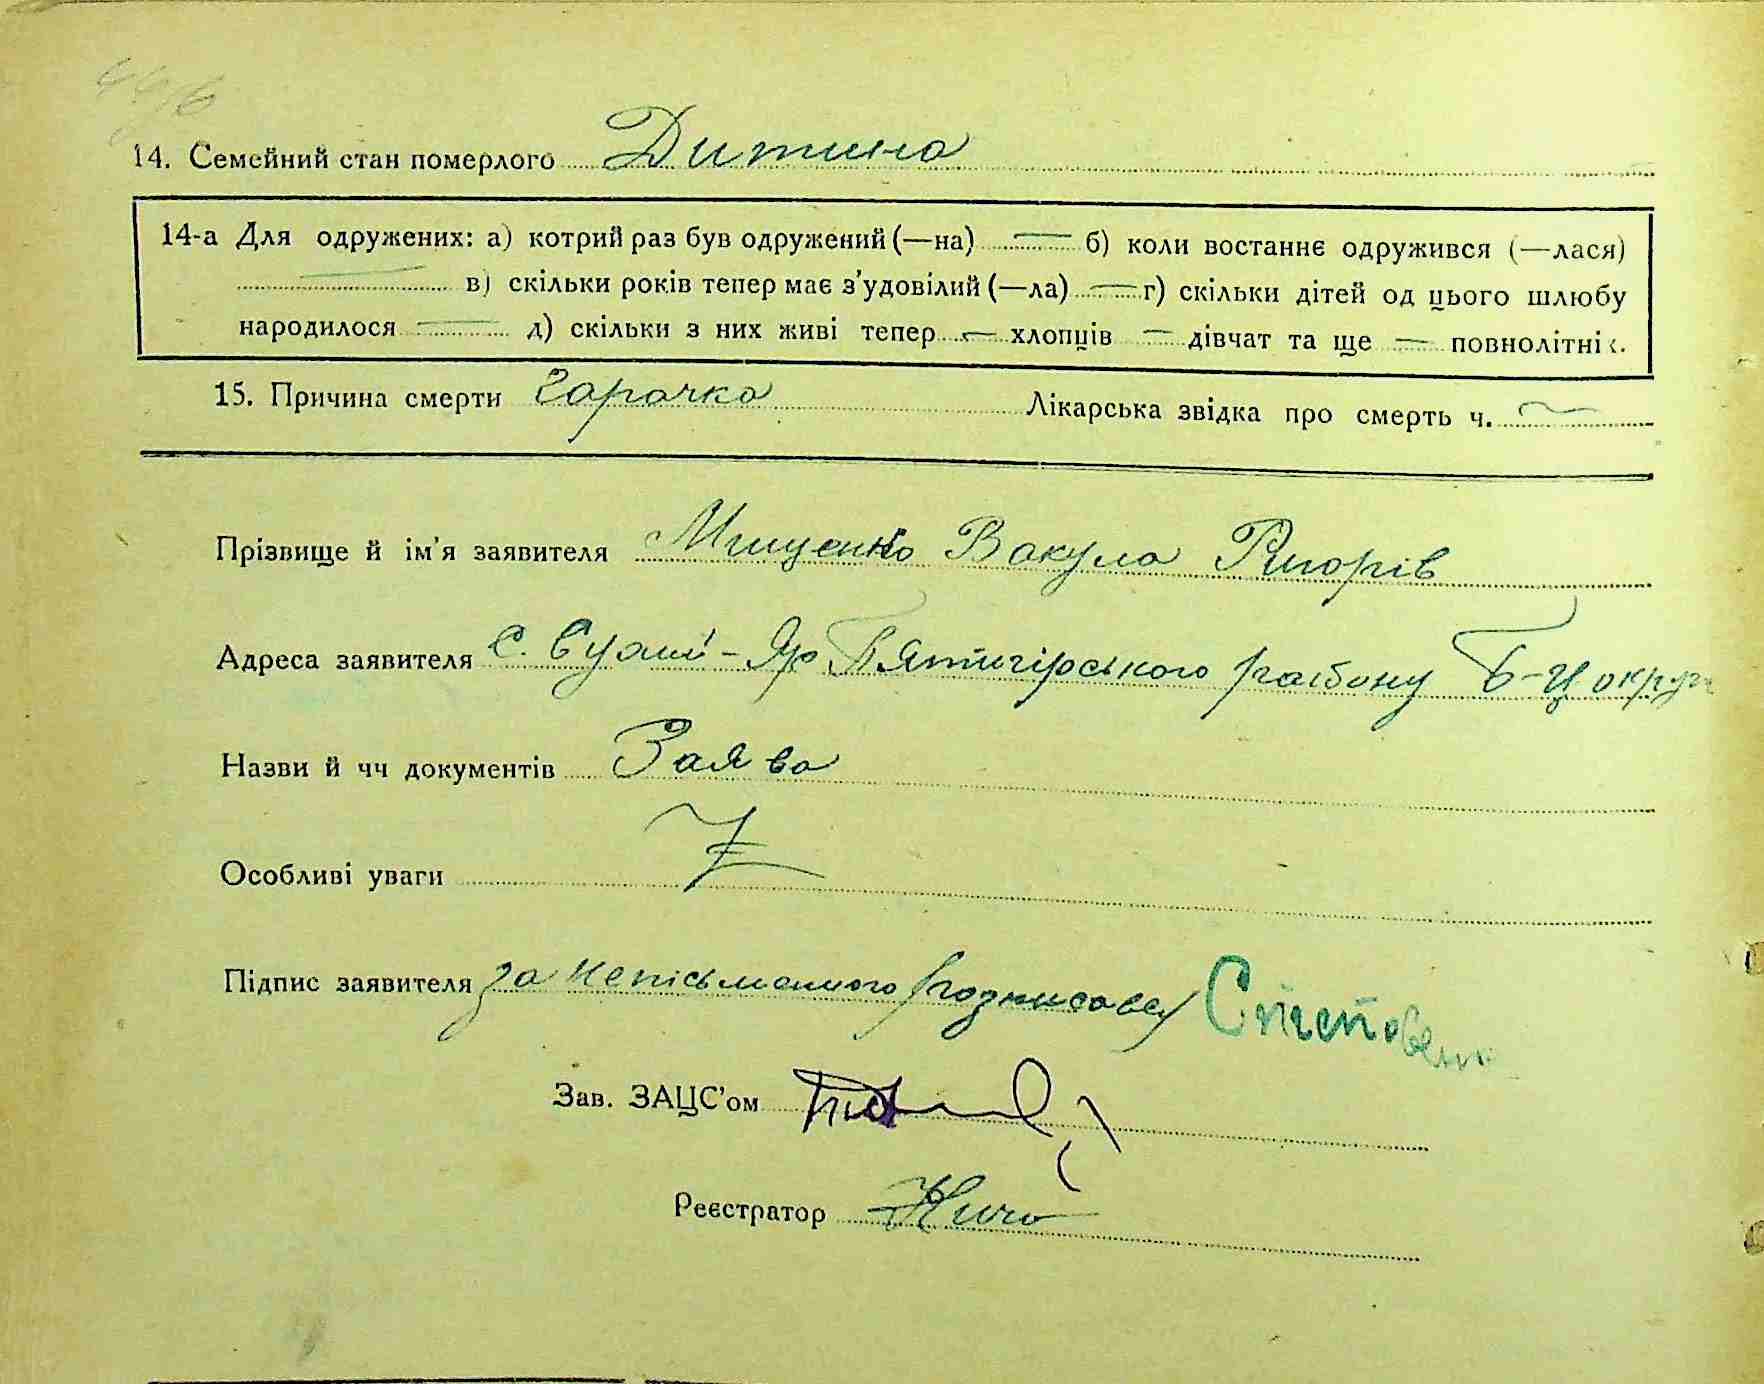 14. Семейний стан померлого Дитина
14-а Для одружених: а) котрий раз був одружений (—на) — б) коли востаннє одружився (—лася)
— в) скільки років тепер має з'удовілий (—ла) — г) скільки дітей од цього шлюбу
народилося — д) скільки з них живі тепер — хлопців — дівчат та ще — повнолітніх.
15. Причина смерти Гарачка Лікарська звідка про смерть ч. —
Прізвище й ім'я заявителя Мищенко Вакула Григорів
Адреса заявителя с. Сухий-Яр Пятигірського району Б-Ц округи
Назви й чч документів Заява
Особливі уваги
Підпис заявителя за неписьменного
Зав. ЗАЦС'ом
Реєстратор